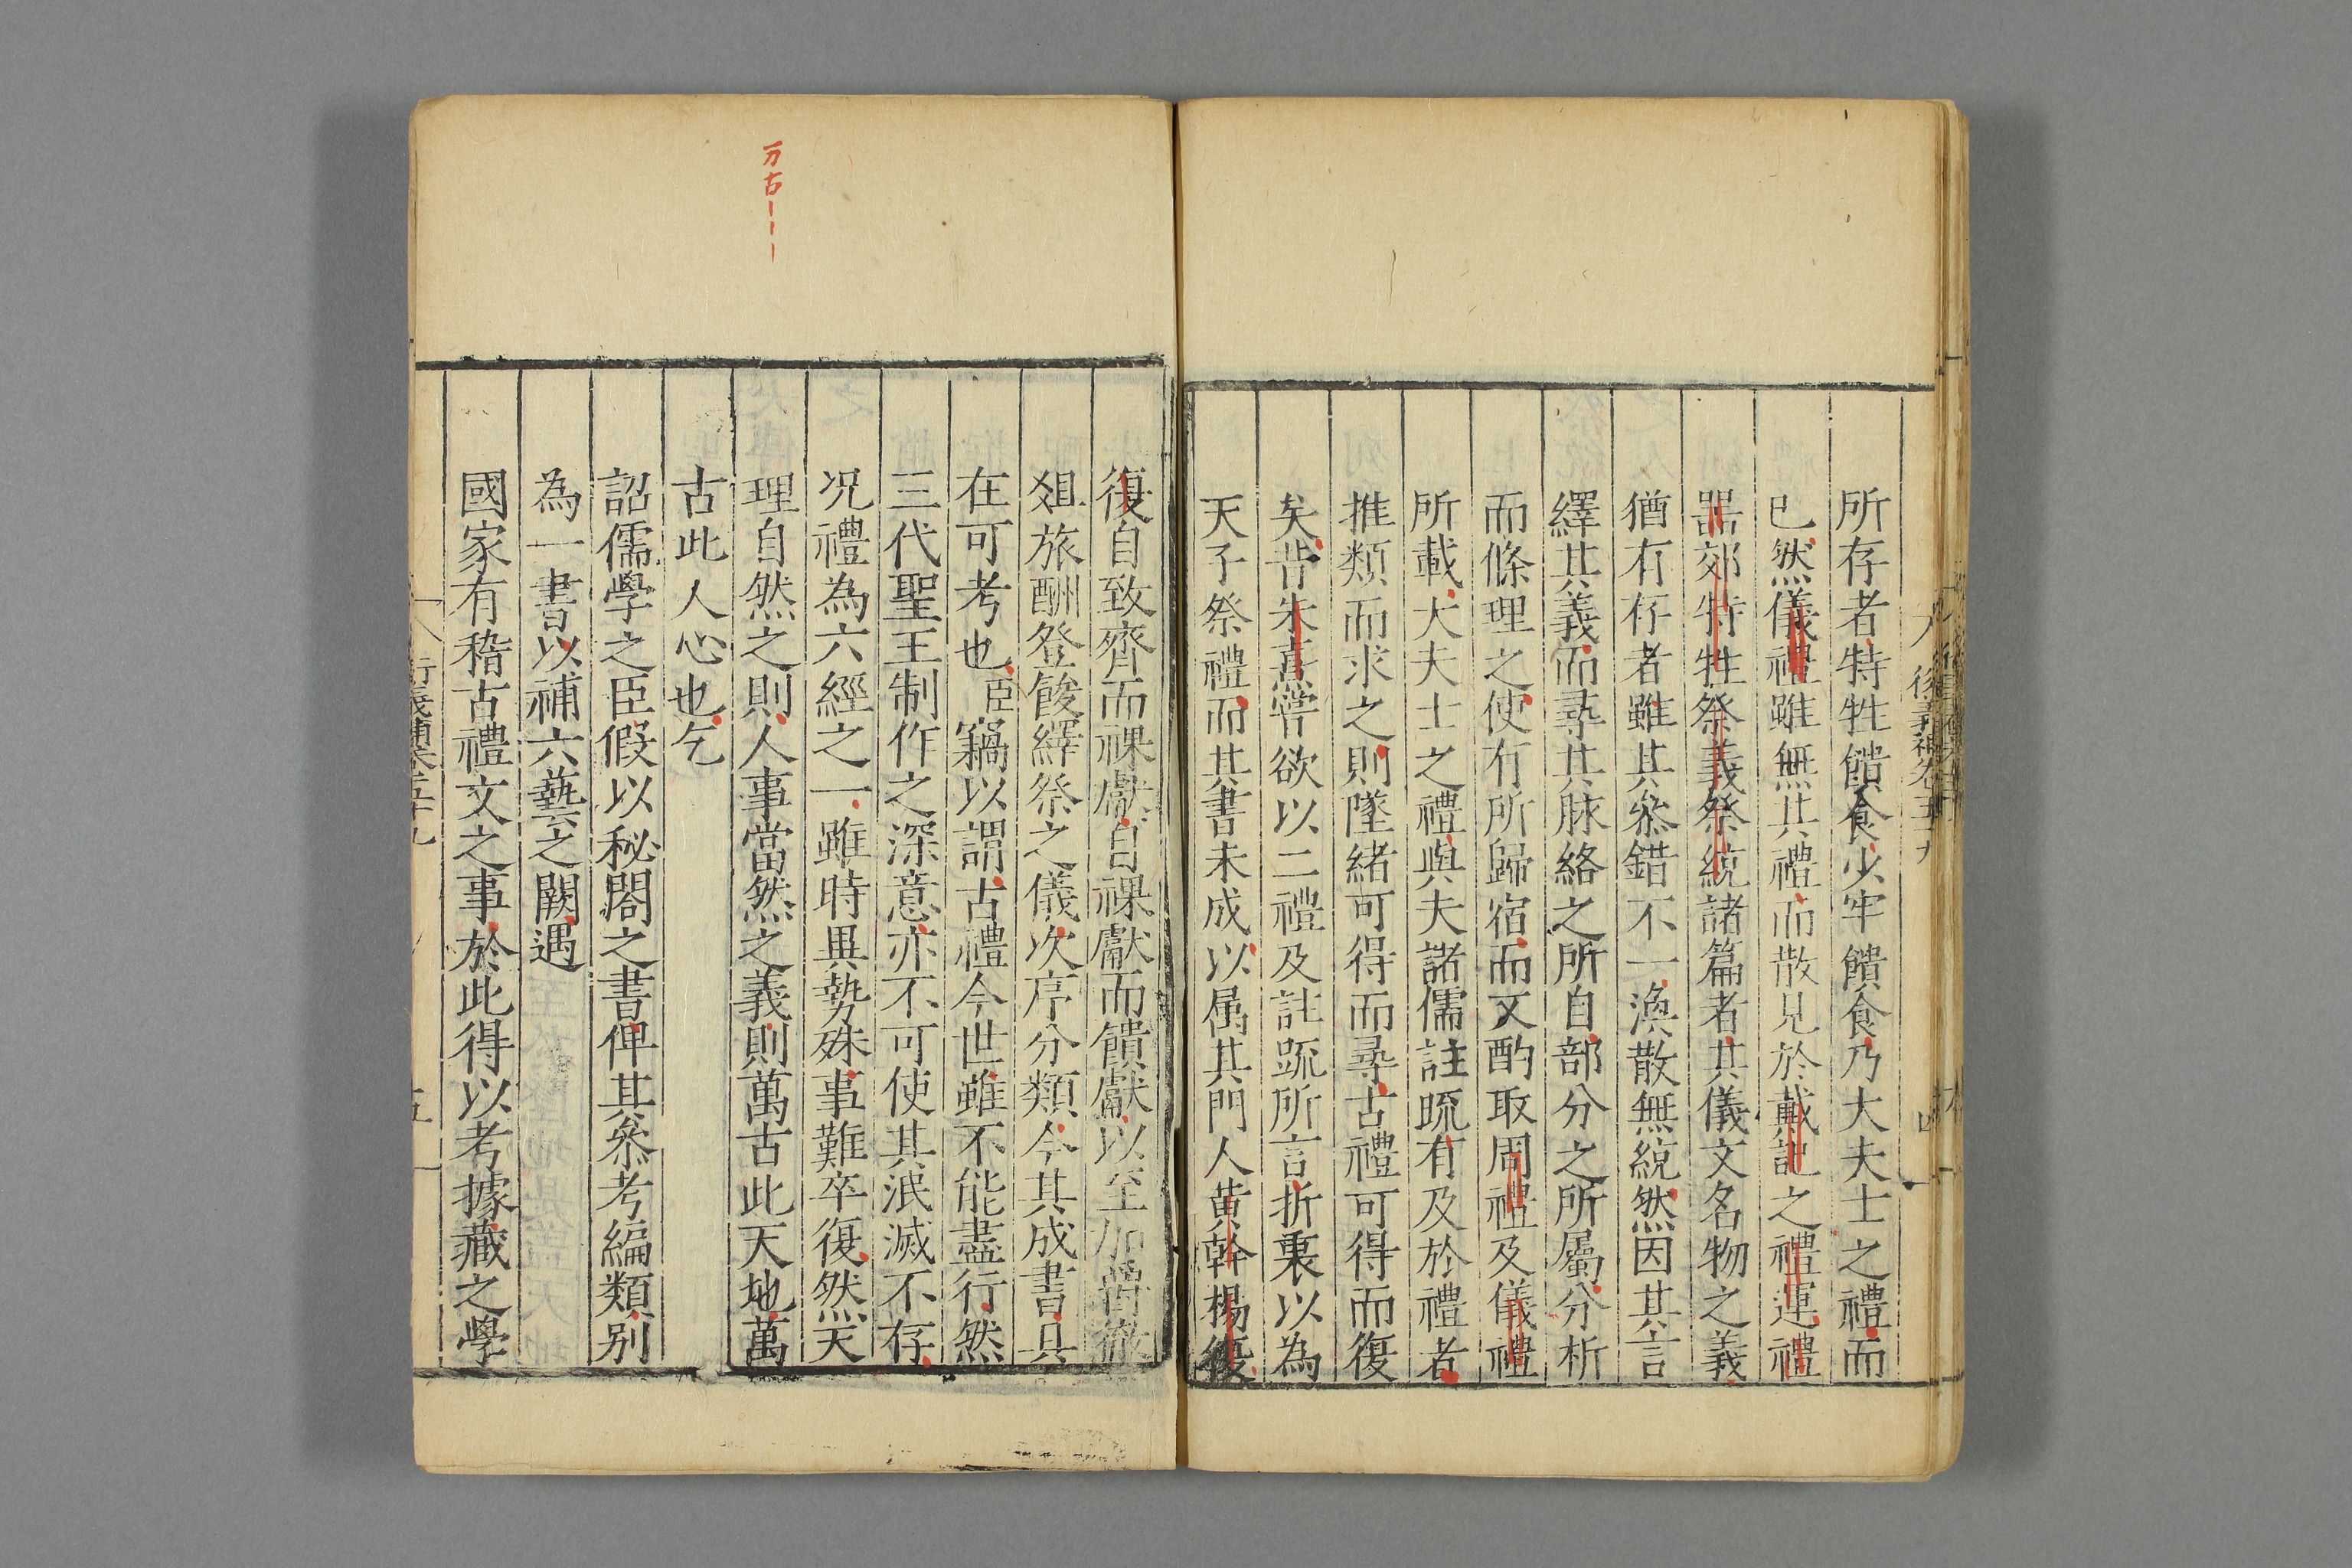 所存者特牲饋食少牢饋食乃大夫士之禮而
已然儀禮雖無其禮而散見於戴記之禮運禮
器郊特牲祭義祭統諸篇者其儀文名物之義
猶有存者雖其叅錯不一渙散無統然因其言
繹其義而尋其脉絡之所自部分之所屬分析
而條理之使有所歸宿而又酌取周禮及儀禮
所載大夫士之禮與夫諸儒註疏有及於禮者
推類而求之則墜緒可得而尋古禮可得而復
矣昔朱熹嘗欲以二禮及註疏所言折衷以為
天子祭禮而其書未成以属其門人黄幹楊復
復自致齊而祼獻自祼獻而饋獻以至加爵徹
俎旅酬登餕繹祭之儀次序分類今其成書具
在可考也臣竊以謂古禮今世雖不能盡行然
三代聖王制作之深意亦不可使其泯滅不存
况禮為六經之一雖時異勢殊事難卒復然天
理自然之則人事當然之義則萬古此天地萬
古此人心也乞
詔儒學之臣假以秘閣之書俾其叅考編類别
為一書以補六藝之闕遇
國家有稽古禮文之事於此得以考據藏之學
万古